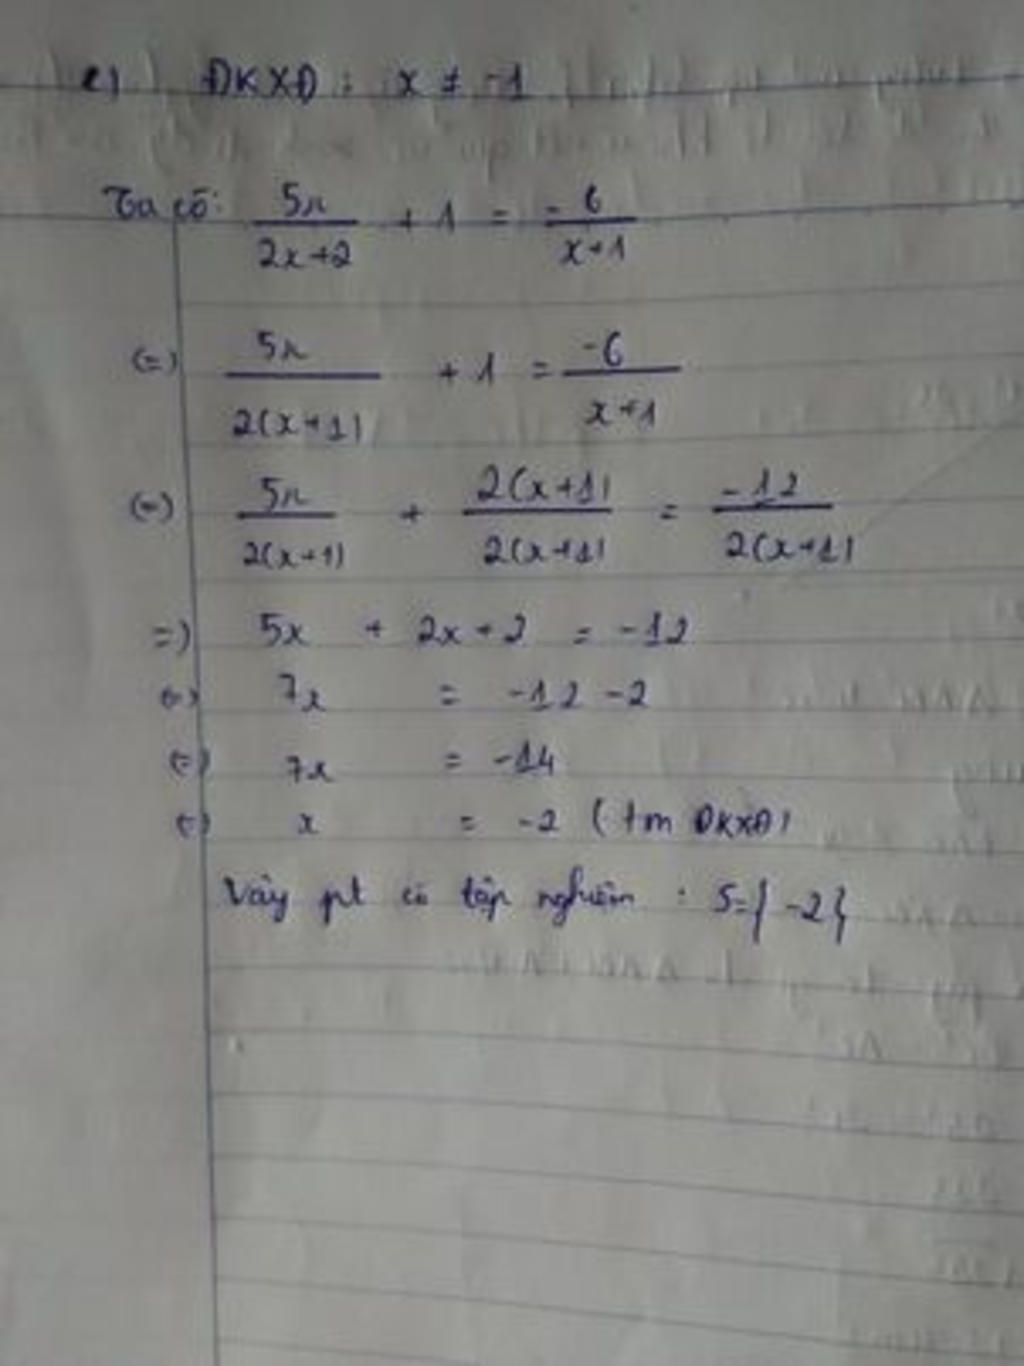 e) ĐKXĐ : x ≠ -1
Ta có: 5x/(2x+2) + 1 = -6/(x+1)
(=) 5x/(2(x+1)) + 1 = -6/(x+1)
(=) 5x/(2(x+1)) + 2(x+1)/(2(x+1)) = -12/(2(x+1))
=) 5x + 2x+2 = -12
(=) 7x = -12 -2
(=) 7x = -14
(=) x = -2 (tm ĐKXĐ)
Vậy pt có tập nghiệm : S={-2}